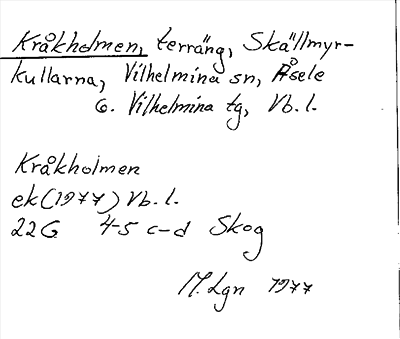 Kråkholmen, terräng, Skällmyr-
kullarna, Vilhelmina sn, Åsele
G. Vilhelmina tg, Vb. l.
Kråkholmen
ek (1977) Vb. l.
22G 4-5 c-d Skog
M. Lgn 1977